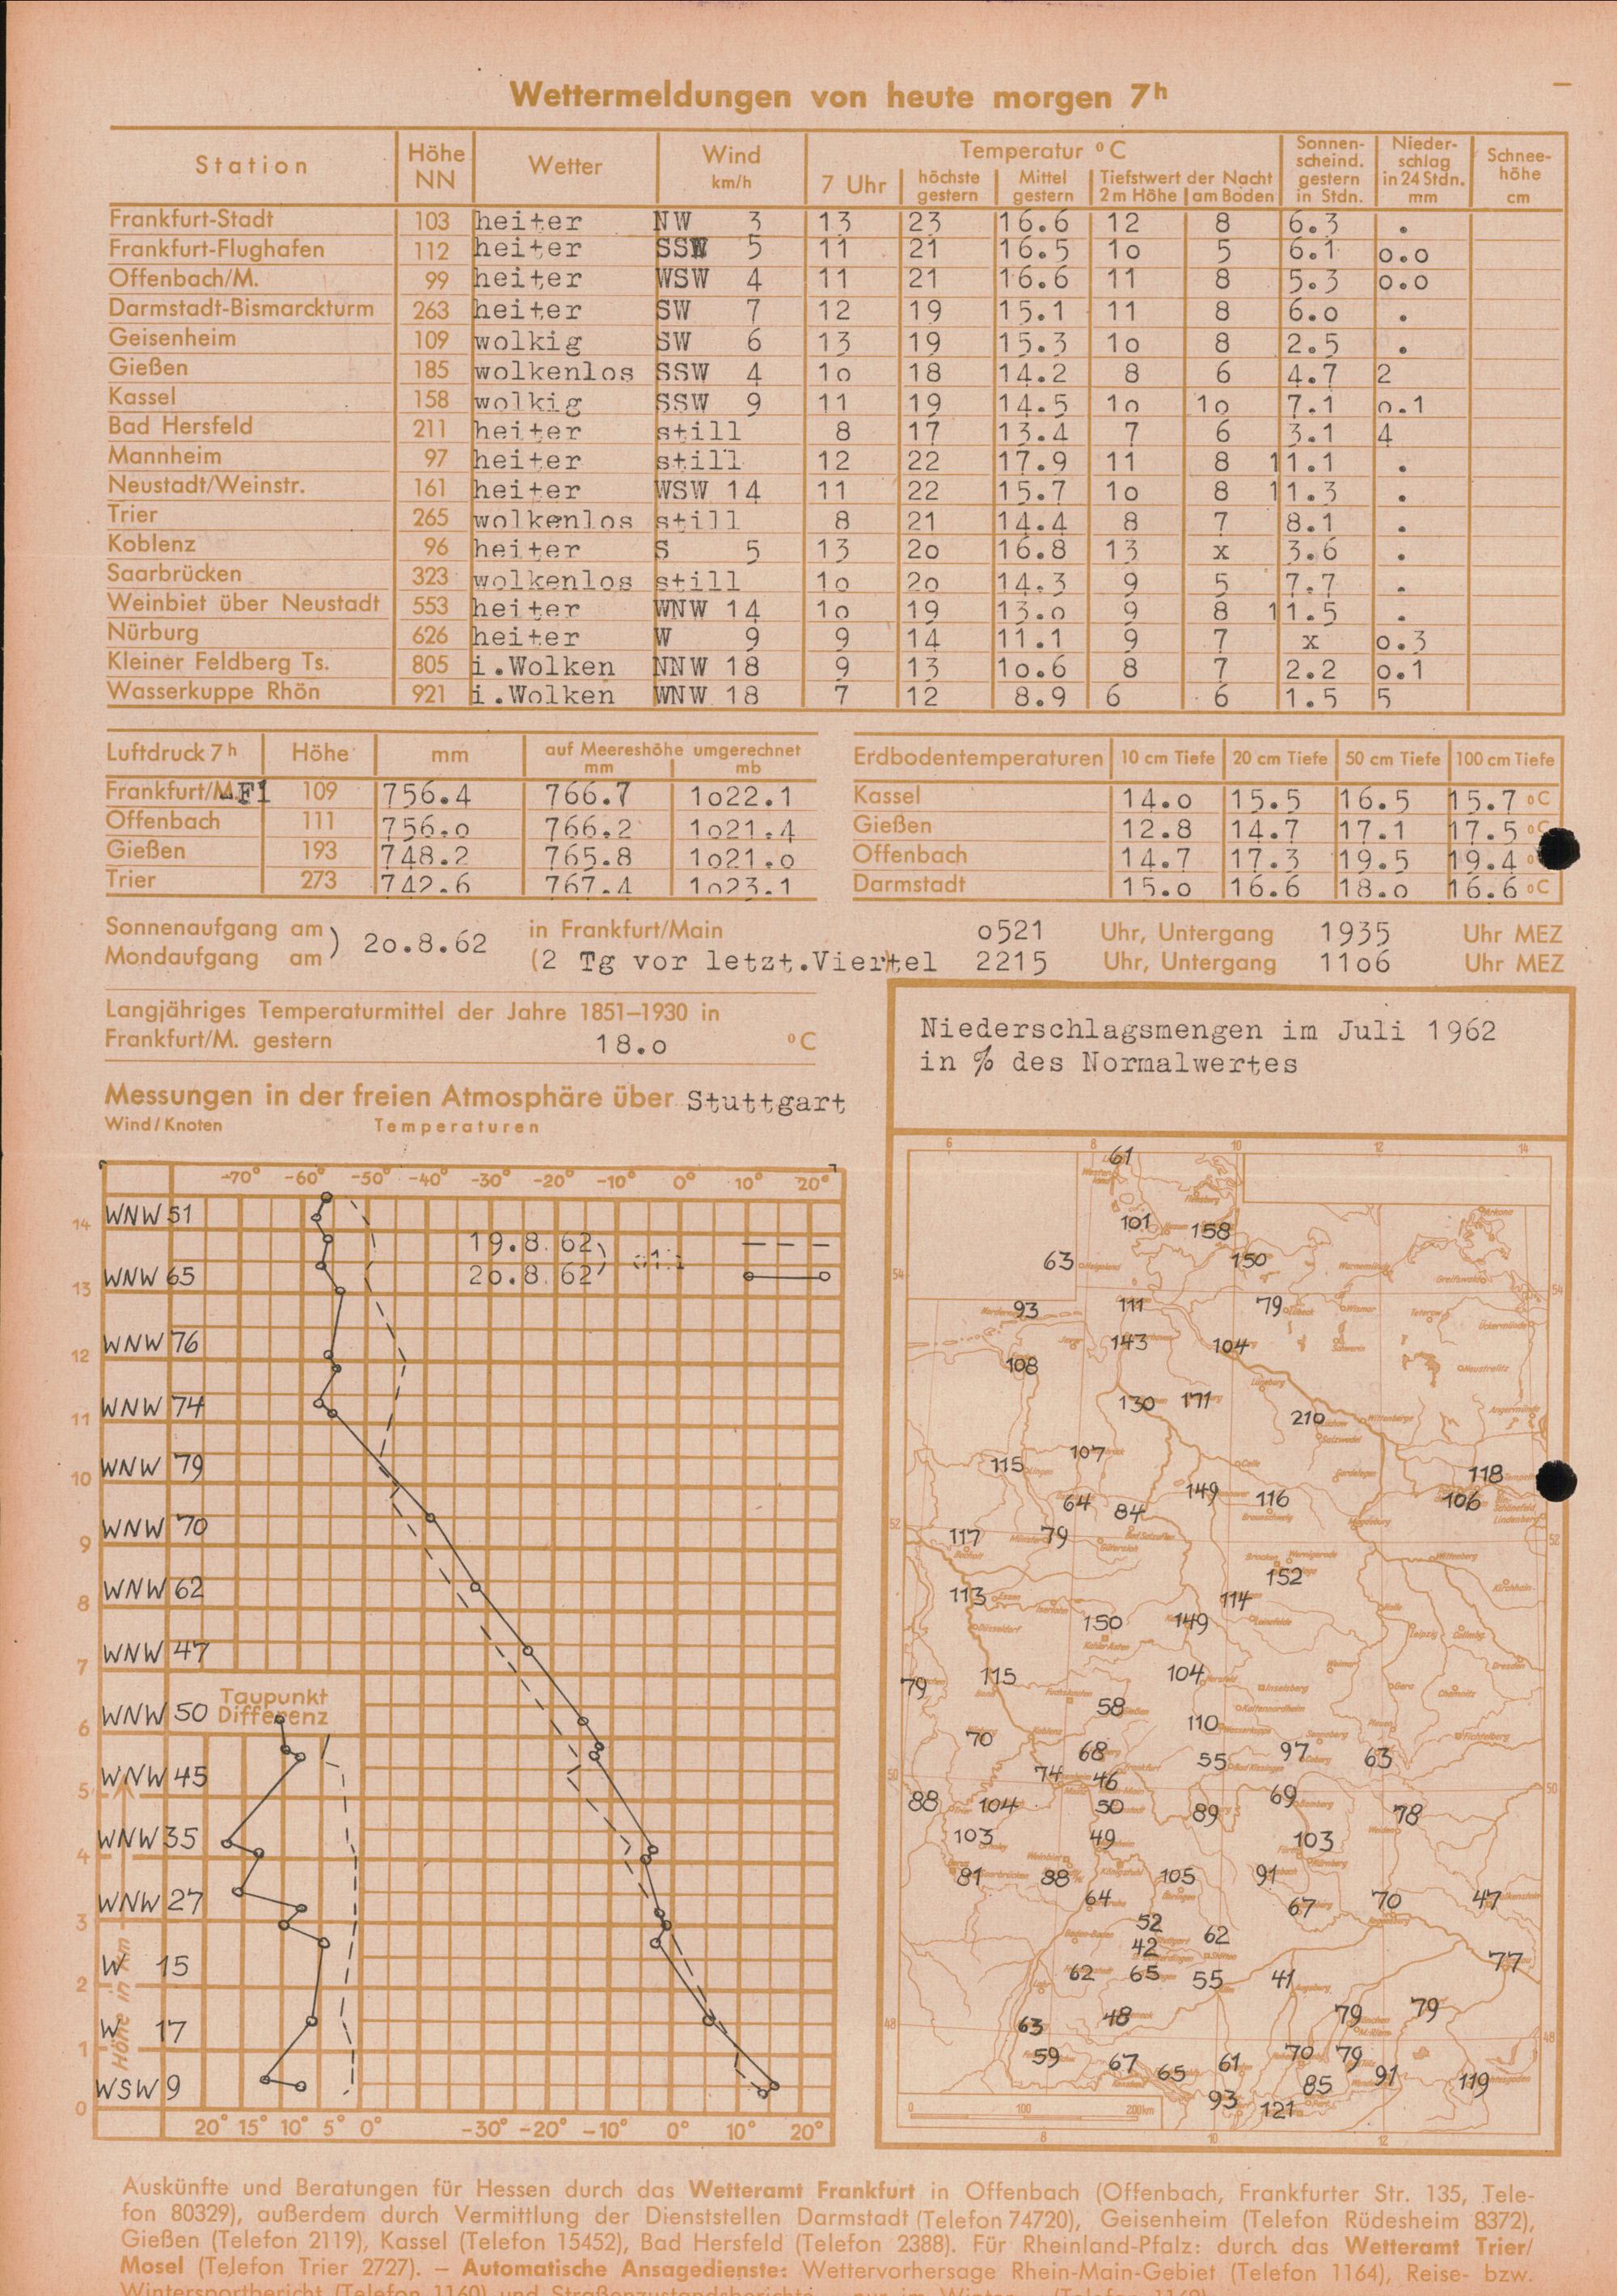 Wettermeldungen von heute morgen 7h
Station Höhe NN Wetter Wind km/h Temperatur °C Sonnenscheind. gestern in Stdn. Niederschlag in 24 Stdn. mm Schneehöhe cm
7 Uhr höchste gestern Mittel gestern Tiefstwert der Nacht 2 m Höhe am Boden
Frankfurt-Stadt 103 heiter NW 3 13 23 16.6 12 8 6.3 .
Frankfurt-Flughafen 112 heiter SSW 5 11 21 16.5 1o 5 6.1 o.o
Offenbach/M. 99 heiter WSW 4 11 21 16.6 11 8 5.3 o.o
Darmstadt-Bismarckturm 263 heiter SW 7 12 19 15.1 11 8 6.o .
Geisenheim 109 wolkig SW 6 13 19 15.3 1o 8 2.5 .
Gießen 185 wolkenlos SSW 4 1o 18 14.2 8 6 4.7 2
Kassel 158 wolkig SSW 9 11 19 14.5 1o 1o 7.1 o.1
Bad Hersfeld 211 heiter still 8 17 13.4 7 6 3.1 4
Mannheim 97 heiter still 12 22 17.9 11 8 11.1 .
Neustadt/Weinstr. 161 heiter WSW 14 11 22 15.7 1o 8 11.3 .
Trier 265 wolkenlos still 8 21 14.4 8 7 8.1 .
Koblenz 96 heiter S 5 13 2o 16.8 13 x 3.6 .
Saarbrücken 323 wolkenlos still 1o 2o 14.3 9 5 7.7 .
Weinbiet über Neustadt 553 heiter WNW 14 1o 19 13.o 9 8 11.5 .
Nürburg 626 heiter W 9 9 14 11.1 9 7 x o.3
Kleiner Feldberg Ts. 805 i.Wolken NNW 18 9 13 1o.6 8 7 2.2 o.1
Wasserkuppe Rhön 921 i.Wolken WNW 18 7 12 8.9 6 6 1.5 5
Luftdruck 7h Höhe mm auf Meereshöhe umgerechnet mm mb
Frankfurt/M.-Fl 109 756.4 766.7 1o22.1
Offenbach 111 756.o 766.2 1o21.4
Gießen 193 748.2 765.8 1o21.o
Trier 273 742.6 767.4 1o23.1
Erdbodentemperaturen 10 cm Tiefe 20 cm Tiefe 50 cm Tiefe 100 cm Tiefe
Kassel 14.o 15.5 16.5 15.7 °C
Gießen 12.8 14.7 17.1 17.5 °C
Offenbach 14.7 17.3 19.5 19.4 °
Darmstadt 15.o 16.6 18.o 16.6 °C
Sonnenaufgang am ) 2o.8.62 in Frankfurt/Main o521 Uhr, Untergang 1935 Uhr MEZ
Mondaufgang am (2 Tg vor letzt.Viertel 2215 Uhr, Untergang 11o6 Uhr MEZ
Langjähriges Temperaturmittel der Jahre 1851–1930 in
Frankfurt/M. gestern 18.o °C
Messungen in der freien Atmosphäre über Stuttgart
Wind / Knoten Temperaturen
-70° -60° -50° -40° -30° -20° -10° 0° 10° 20°
14 WNW 51
19.8.62)
2o.8.62)
13 WNW 65
12 WNW 76
11 WNW 74
10 WNW 79
9 WNW 70
8 WNW 62
7 WNW 47
6 WNW 50
Taupunkt
Differenz
5 WNW 45
4 WNW 35
3 WNW 27
2 W 15
1 W 17
0 WSW 9
Höhe in km
20° 15° 10° 5° 0° -30° -20° -10° 0° 10° 20°
Niederschlagsmengen im Juli 1962
in % des Normalwertes
6 8 10 12 14
61
101 158
63 150
54 54
93 111 79
143 104
108
130 171
210
107
115 118
149 116 106
64 84
52 117 79 52
152
113 114
150 149
79 115 104
58
110
70
68 55 97 63
50 74 46 50
88 104 50 89 69 78
103 49 103
81 88 105 91
64 67 70 47
52
42 62
77
62 65 55 41
48 63 48 79 79 48
59 67 65 61 70 79 91 119
85
93 121
0 100 200km
8 10 12
Auskünfte und Beratungen für Hessen durch das Wetteramt Frankfurt in Offenbach (Offenbach, Frankfurter Str. 135, Tele-
fon 80329), außerdem durch Vermittlung der Dienststellen Darmstadt (Telefon 74720), Geisenheim (Telefon Rüdesheim 8372),
Gießen (Telefon 2119), Kassel (Telefon 15452), Bad Hersfeld (Telefon 2388). Für Rheinland-Pfalz: durch das Wetteramt Trier/
Mosel (Telefon Trier 2727). — Automatische Ansagedienste: Wettervorhersage Rhein-Main-Gebiet (Telefon 1164), Reise- bzw.
Wintersportbericht (Telefon 1160) und Straßenzustandsberichte